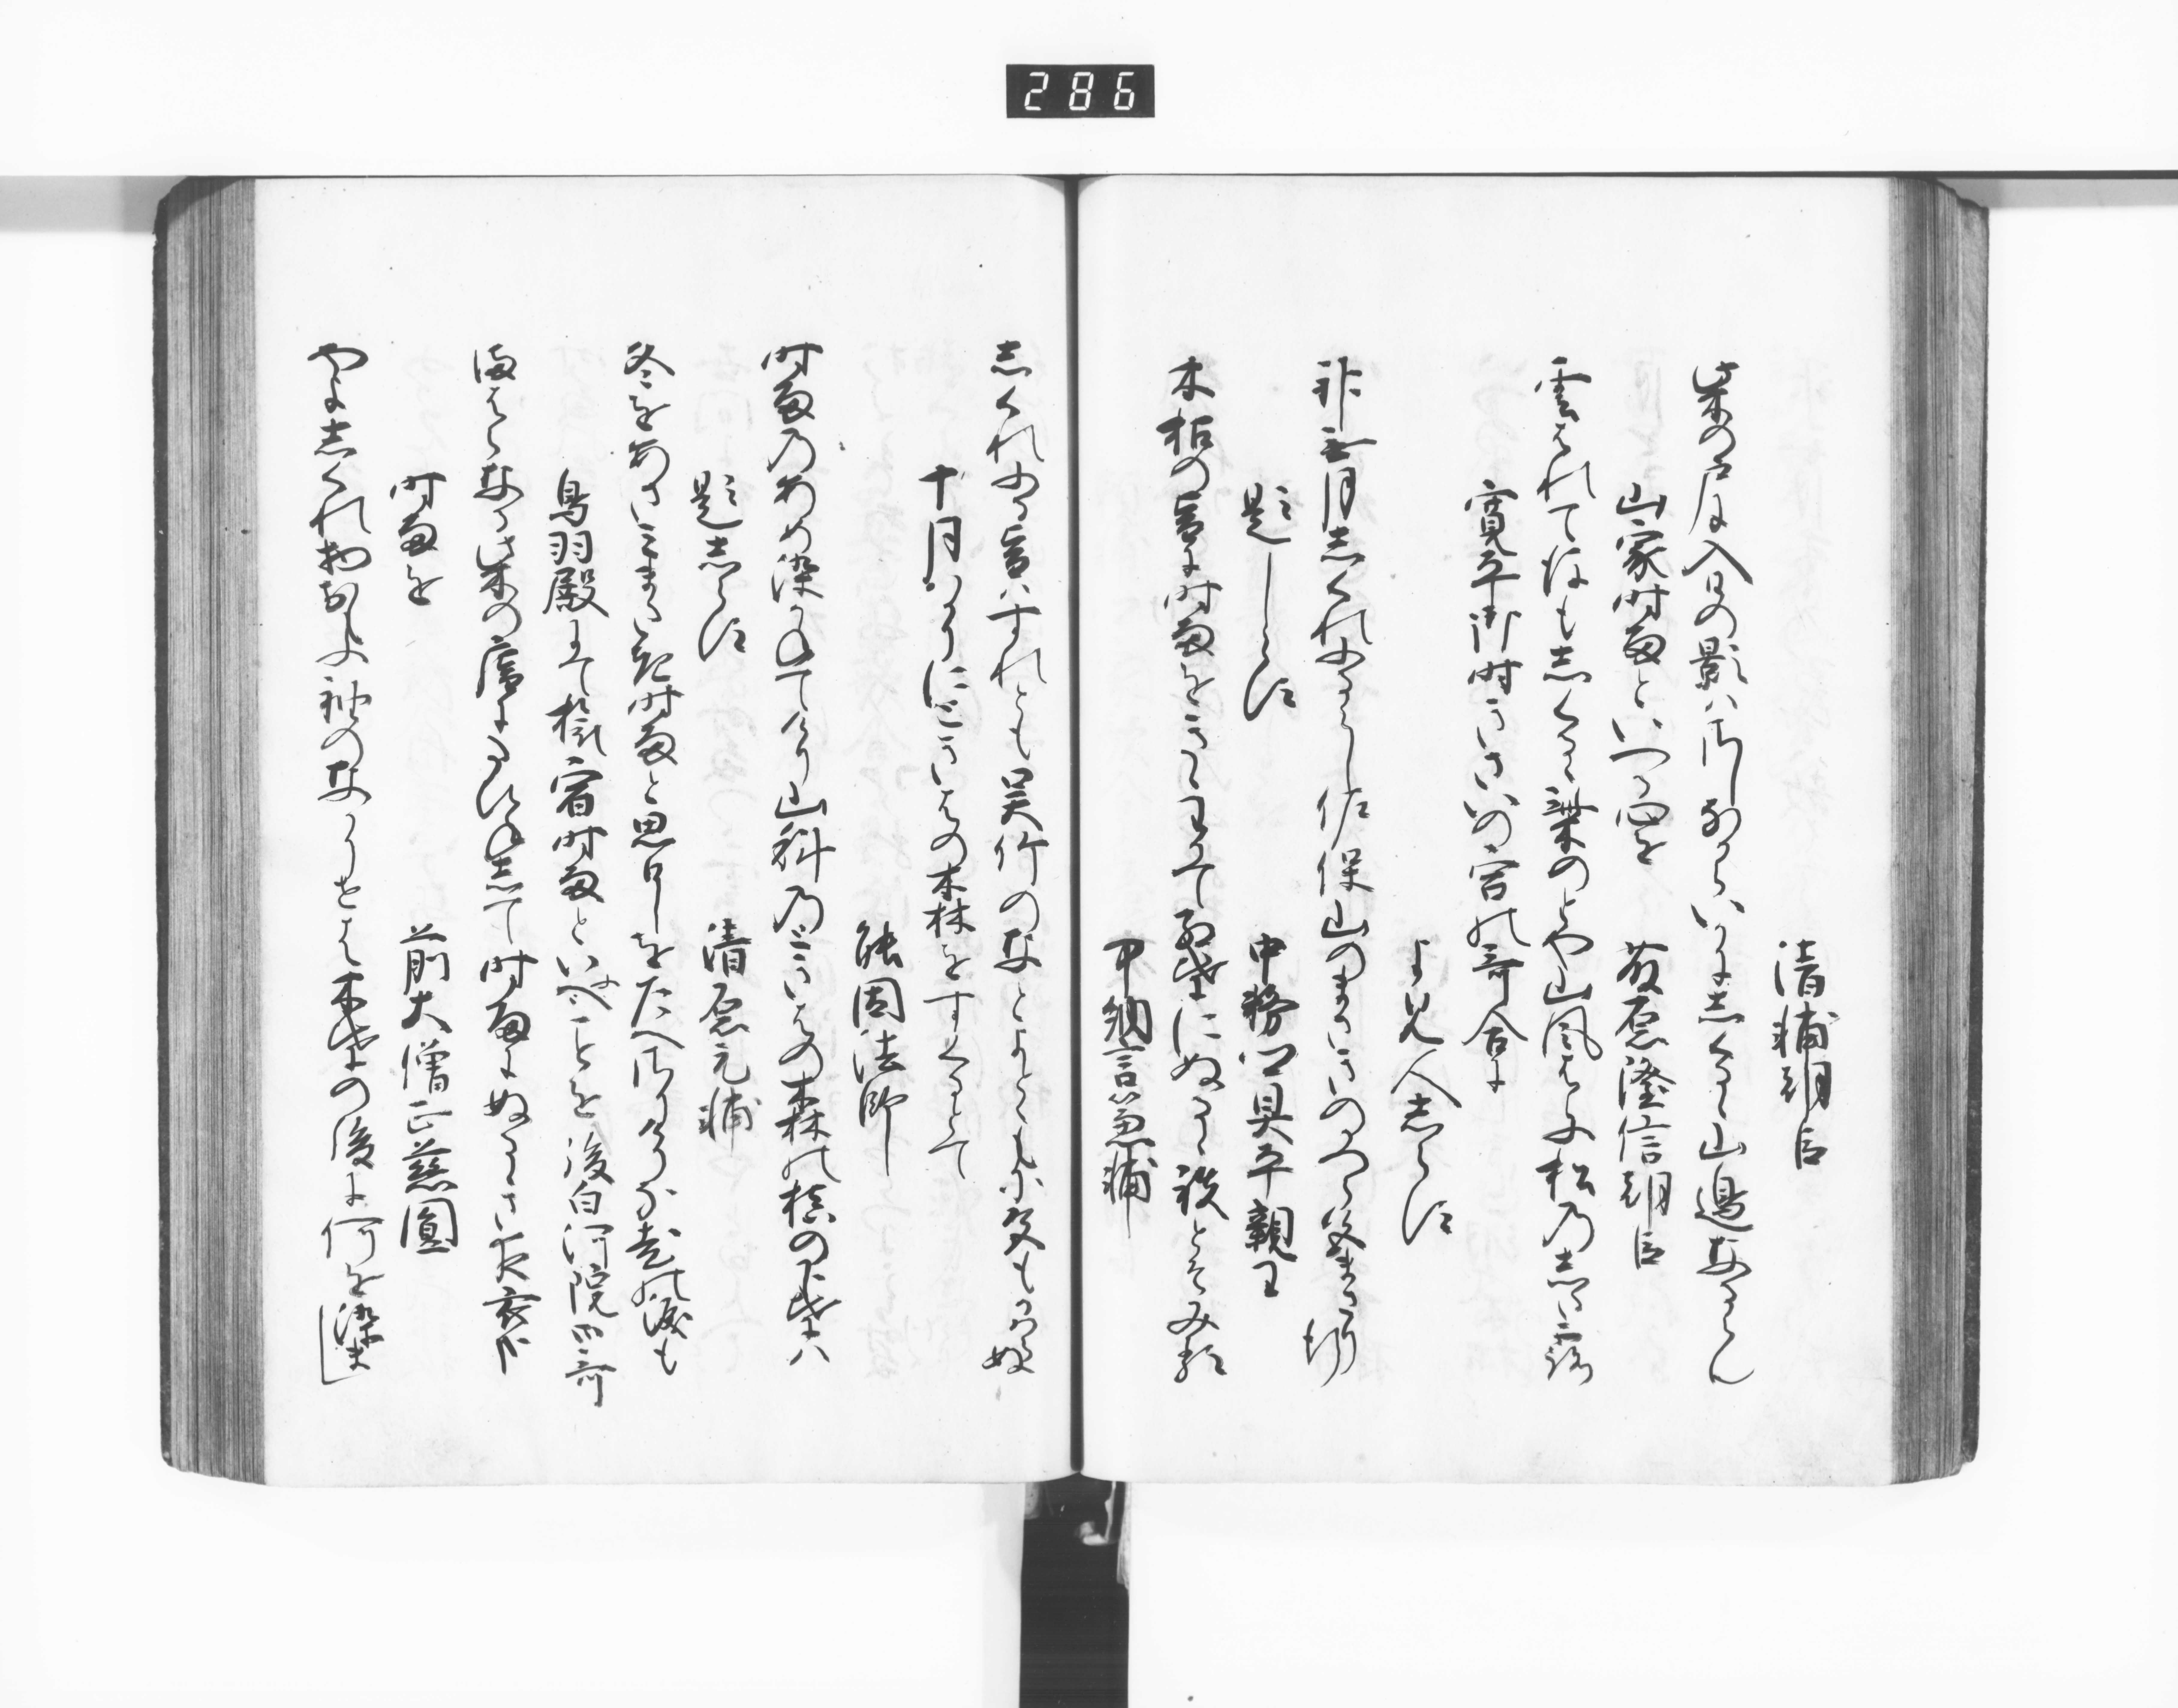 286
清輔朝臣
柴の戸に入日の影はさしなからいかにしくるゝ山邊なるらん
山家時雨といへる心を
藤原隆信朝臣
雲はれて後もしくるゝ柴のとや山風はらふ松のした露
寛平御時きさいの宮の哥合に
よみ人しらす
神無月しくれふるらし佐保山のまさきのかつら色まさり行
題しらす
中務卿具平親王
木枯の音に時雨をきゝわかて紅葉にぬるゝ袂とそみる
中納言兼輔
しくれふる音はすれとも呉竹のなとよとゝもに色もかはらぬ
十月はかりときはの森をすくとて
能因法師
時雨の雨染かねてけり山科のときはの森の槙の下葉は
題しらす
清原元輔
冬をあさみまたき時雨と思ひしをたえさりけりな老の涙も
鳥羽殿にて旅宿時雨といふことを
後白河院御哥
まはらなる柴の庵に旅ねして時雨にぬるゝさ夜衣かな
時雨を
前大僧正慈圓
やよしくれ物思ふ袖のなかりせは木葉の後に何を染まし